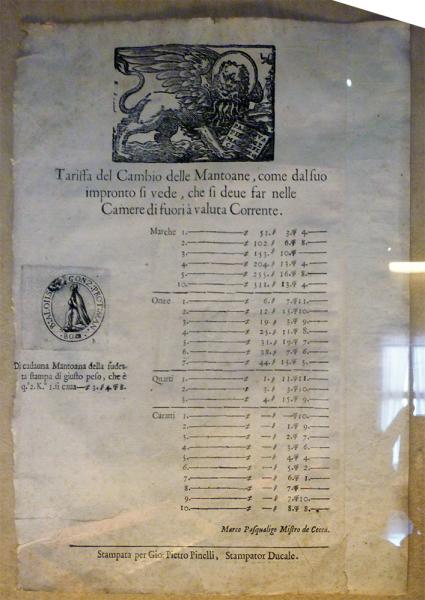 Tariffa del Cambio delle Mantoane, come dal suo
impronto si vede, che si deue far nelle
Camere di fuori à valuta Corrente.
Marche 1. 51. 3. 4
2. 102. 6. 8.
3. 153. 10.
4. 204. 13. 4
5. 255. 16. 8
10. 511. 13. 4
Onze 1. 6. 7. 11.
2. 12. 15. 10.
3. 19. 3. 9
4. 25. 11. 8
5. 31. 19. 7
6. 38. 7. 6
7. 44. 15. 5
Di cadauna Mantoana della sudet-
ta stampa di giusto peso, che è
q.ª 2. K.ª 1. si caua 3. 4. 8.
Quarti 1. 1. 11. 11.
2. 3. 3. 10
3. 4. 15. 9
Caratti 1. 10.
2. 1. 9
3. 2. 7
4. 3. 6
5. 4. 4
6. 5. 2
7. 6. 1
8. 7.
9. 7. 10
10. 8. 8
Marco Pasqualigo Mistro de Cecca.
Stampata per Gio: Pietro Pinelli, Stampator Ducale.